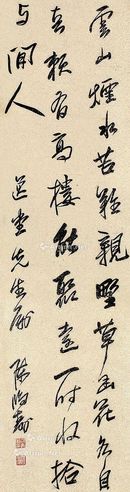 雲山煙水苦難親野草幽花各自
春賴有高樓能聚遠一時收拾
与閒人
邕堂先生属 陈鸿寿